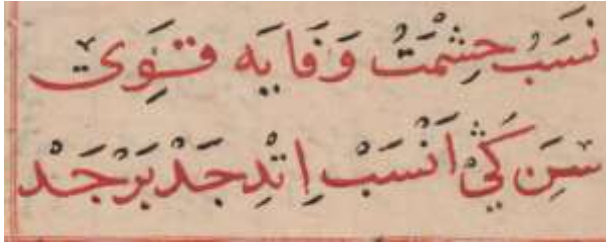 نَسَبُ حِشْمَتُ وَفَايَه قَوِى
سَنِ كَبِى اَنْسَبْ اِتْدِ جَدْ بَرْ جَدْ